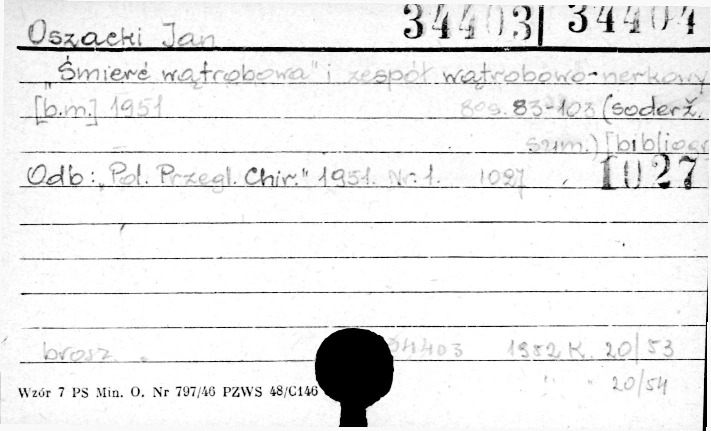 34403 | 34404
Oszacki Jan
"Śmierć wątrobowa" i zespół wątrobowo-nerkowy
[b.m.] 1951 8os. 83-103 (soderž.
sum.) [bibliogr
Odb: "Pol. Przegl. Chir." 1951. Nr. 1. 1027 1027
brosz. 34403 1952 K. 20/53
" " 20/54
Wzór 7 PS Min. O. Nr 797/46 PZWS 48/C146